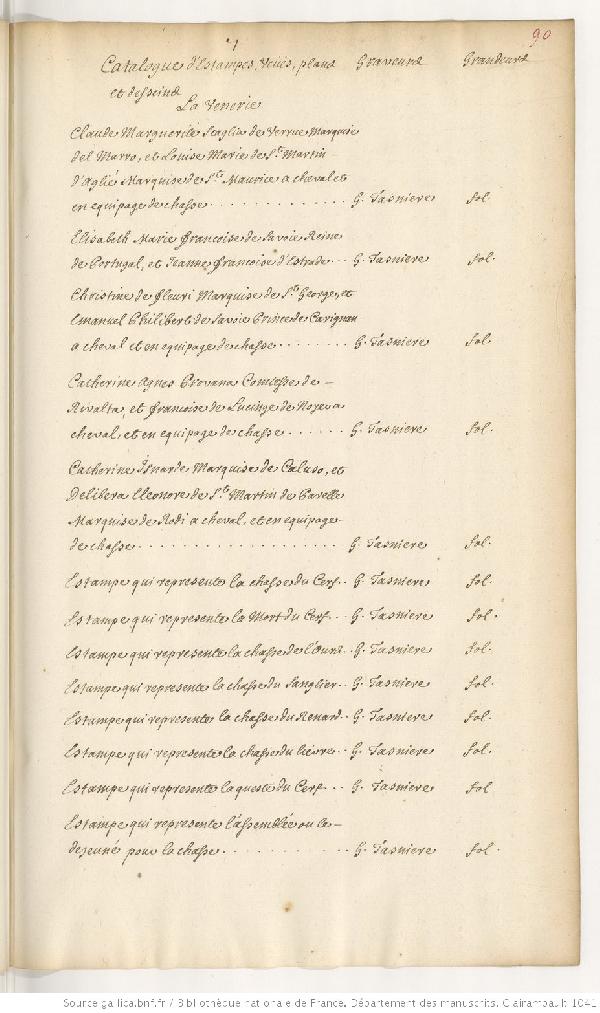 90
Catalogue d'Estampes, Veües, plans Graveurs Grandeurs
et desseins
La Venerie
Claude Marguerite Scaglia de Verrue Marquise
del Marro, et Louise Marie de St. Martin
d'Aglié Marquise de St. Maurice a cheval et
en equipage de chasse . . . . . . . . . . . . . G. Tasniere fol.
Elisabeth Marie françoise de Savoie Reine
de Portugal, et Jeanne françoise d'Estrade . . . G. Tasniere fol.
Christine de fleuri Marquise de St. George, et
Emanuel Philibert de Savoie Prince de Carignan
a cheval et en equipage de chasse . . . . . . . . G. Tasniere fol.
Catherine Agnes Provana Comtesse de –
Rivalta, et françoise de Lucinge de Noyer a
cheval, et en equipage de chasse . . . . . . G. Tasniere fol.
Catherine Isnarde Marquise de Caluso, et
Delibera Eleonore de St. Martin de Parelle
Marquise de Rodi a cheval, et en equipage
de chasse . . . . . . . . . . . . . . . . . . G. Tasniere fol.
Estampe qui represente la chasse du Cerf . . G. Tasniere fol.
Estampe qui represente la Mort du Cerf . . . G. Tasniere fol.
Estampe qui represente la chasse de l'Ours . . G. Tasniere fol.
Estampe qui represente la chasse du Sanglier . . G. Tasniere fol.
Estampe qui represente la chasse du Renard . . G. Tasniere fol.
Estampe qui represente la chasse du lievre . . G. Tasniere fol.
Estampe qui represente la queste du Cerf . . . G. Tasniere fol
Estampe qui represente l'assemblée ou le –
dejeuné pour la chasse . . . . . . . . . . . . G. Tasniere fol.
Source gallica.bnf.fr / Bibliothèque nationale de France. Département des manuscrits. Clairambault 1041